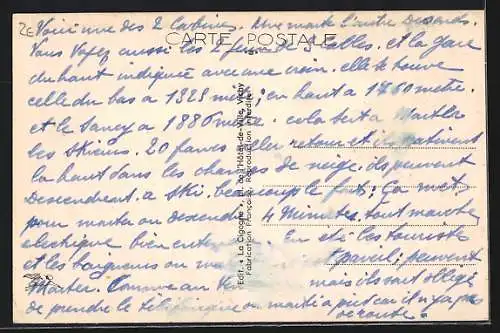 2E Voici une des 2 Cabines. Une monte l'autre Descends.
Vous Voyez aussi les 2 gares des câbles. et la gare
CARTE POSTALE
du haut indiquée avec une croix. elle se trouve
celle du bas a 1325 mètre; en haut a 1760 metre.
et le Sancy a 1886 metre. cela sert a Monter
les skieurs. 20 francs aller retour et ils
la haut dans les champs de neige. ils peuvent
Descendrent a ski. beaucoup le font; Ça met
pour monter ou descendre 4 Minutes. tout marche
electrique bien entendu. En été les touristes
et les baigneurs ou peuvent
mais ils sont obligé
Monter. Comme au
de prendre le téléphérique ou monté a pied car il n'y a pas
de route.
Edit. « La Cigogne », Pl. de l'Hôtel-de-Ville, Vichy
Fabrication Française. Reproduction interdite